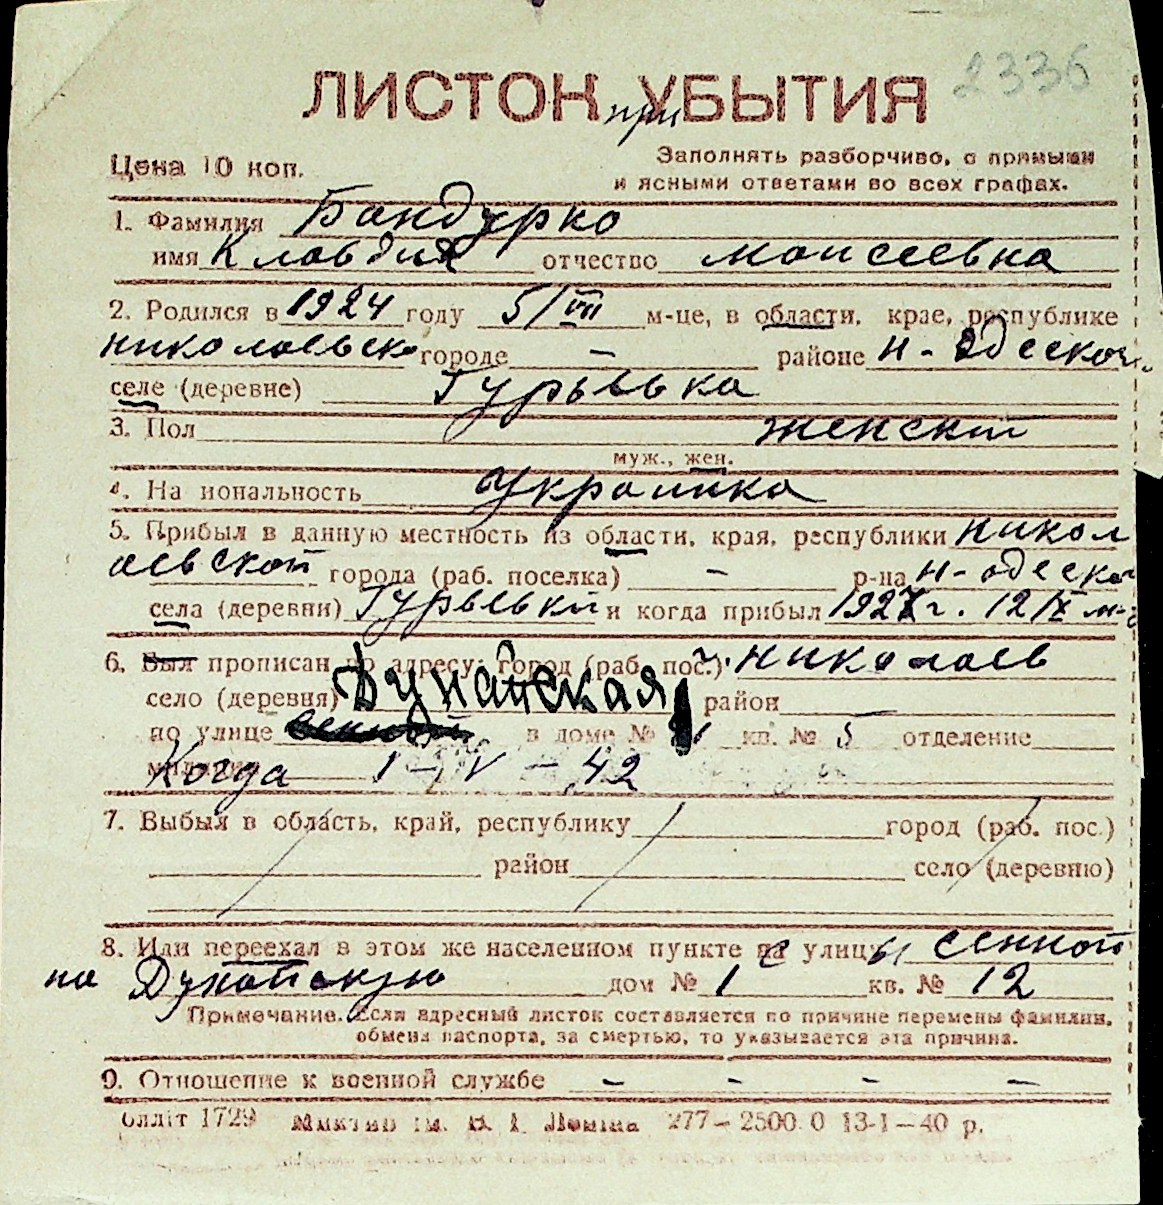 2336
ЛИСТОК при УБЫТИЯ
Цена 10 коп.
Заполнять разборчиво, с прямыми
и ясными ответами во всех графах.
1. Фамилия Бандурко
имя Клавдия отчество моисеевна
2. Родился в 1924 году 5/VII м-це, в области, крае, республике
николаевско городе – районе н-одеском
селе (деревне) Гурьевка
3. Пол женский
муж., жен.
4. На иональность Украинка
5. Прибыл в данную местность из области, края, республики никол
аевской города (раб. поселка) – р-на н-одеско
села (деревни) Гурьевки и когда прибыл 1927г. 12/IX м-ц
6. Был прописан по адресу: город (раб. пос.) г. николаев
село (деревня) Дунайская район
по улице сенной в доме № 1 кв. № 5 отделение
Когда 1-IV-42
7. Выбыл в область, край, республику город (раб. пос.)
район село (деревню)
8. Или переехал в этом же населенном пункте с улицы сенной
на Дунайскую дом № 1 кв. № 12
Примечание. Если адресный листок составляется по причине перемены фамилии,
обмена паспорта, за смертью, то указывается эта причина.
9. Отношение к военной службе – – – –
Облліт 1729 277–2500.0 13-1–40 р.